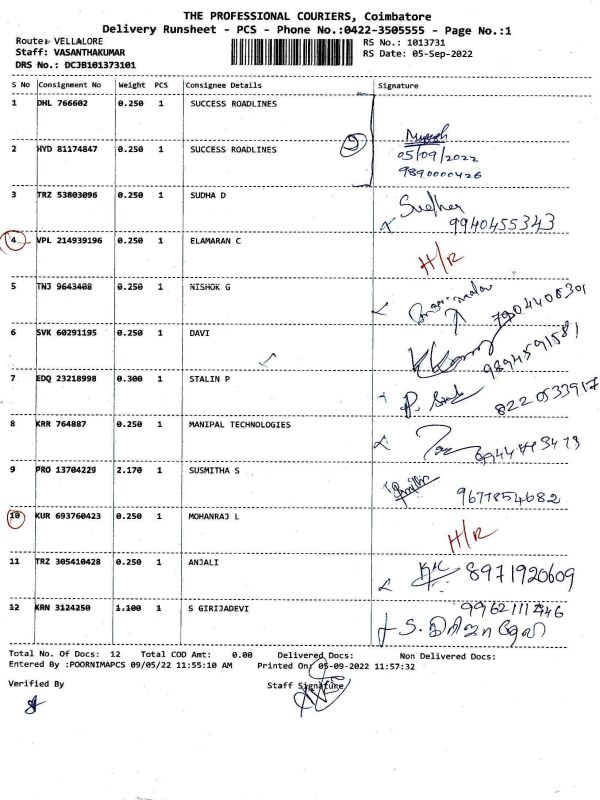 THE PROFESSIONAL COURIERS, Coimbatore
Delivery Runsheet - PCS - Phone No.:0422-3505555 - Page No.:1
Route: VELLALORE RS No.: 1013731
Staff: VASANTHAKUMAR RS Date: 05-Sep-2022
DRS No.: DCJB101373101
S No Consignment No Weight PCS Consignee Details Signature
1 DHL 766602 0.250 1 SUCCESS ROADLINES
2 HYD 81174847 0.250 1 SUCCESS ROADLINES
05/09/2022
9890000426
3 TRZ 53803096 0.250 1 SUDHA D
9940455343
4 VPL 214939196 0.250 1 ELAMARAN C H/R
5 TNJ 9643408 0.250 1 NISHOK G
7904408301
6 SVK 60291195 0.250 1 DAVI
9894591581
7 EDQ 23218998 0.300 1 STALIN P
8220533917
8 KRR 764887 0.250 1 MANIPAL TECHNOLOGIES
9 PRO 13704229 2.170 1 SUSMITHA S
9677854682
10 KUR 693760423 0.250 1 MOHANRAJ L H/R
11 TRZ 305410428 0.250 1 ANJALI 8971920609
12 KRN 3124250 1.100 1 S GIRIJADEVI
Total No. Of Docs: 12 Total COD Amt: 0.00 Delivered Docs: Non Delivered Docs:
Entered By :POORNIMAPCS 09/05/22 11:55:10 AM Printed On: 05-09-2022 11:57:32
Verified By Staff Signature